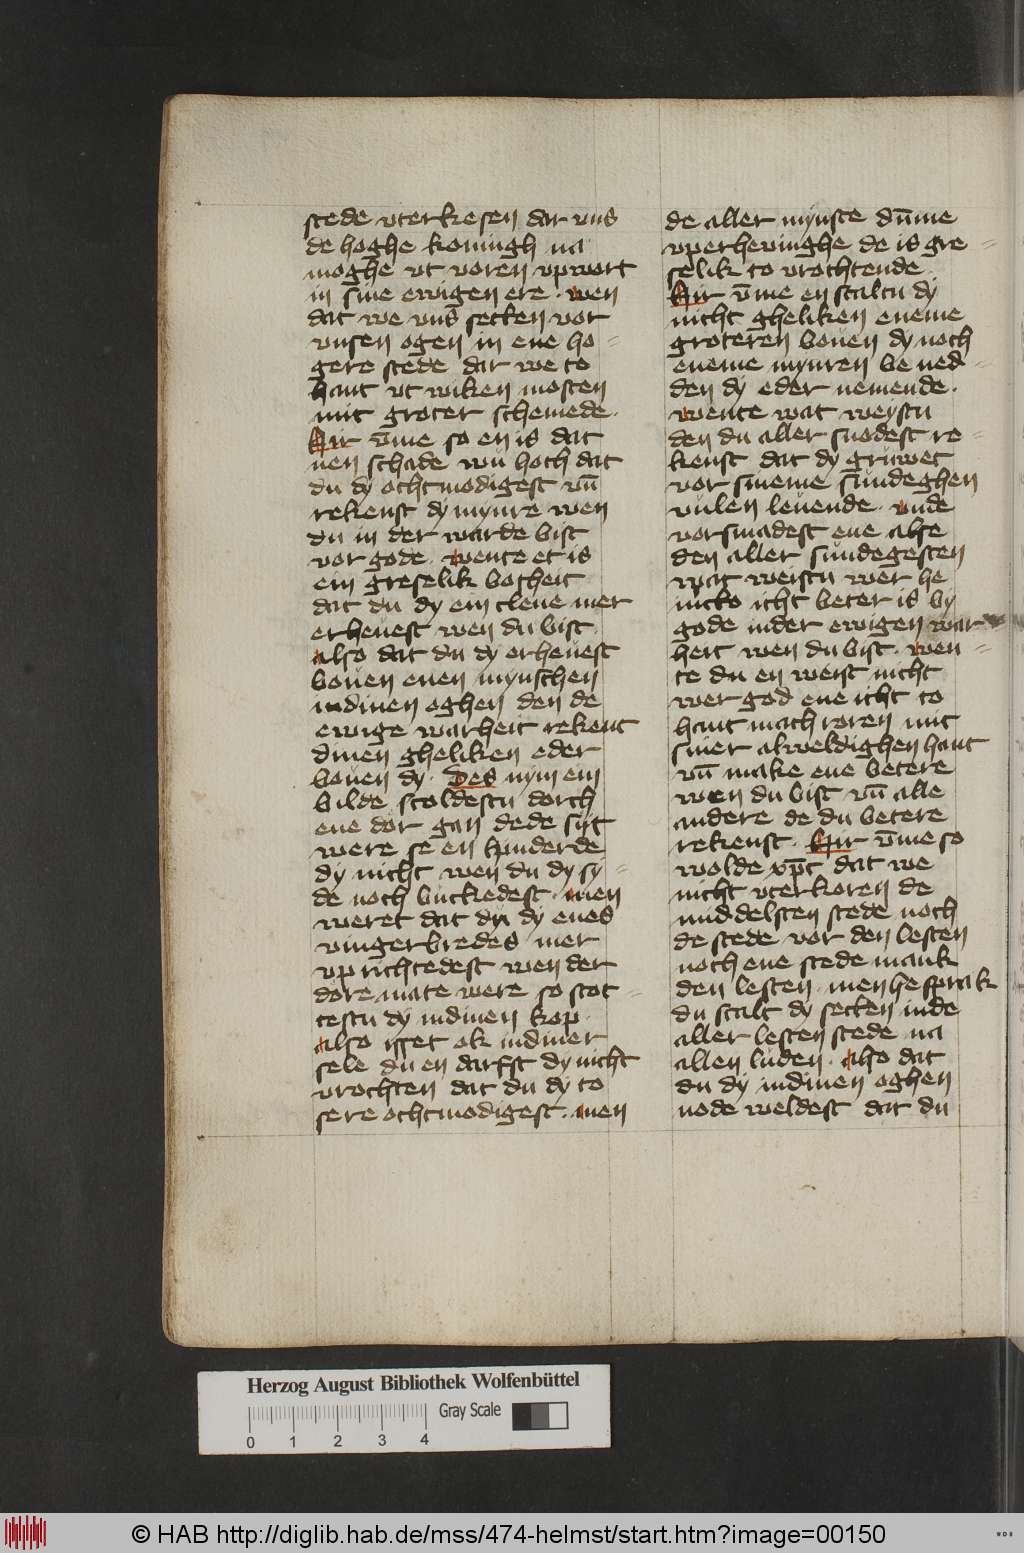 stede vterkesen dar vns
de hoghe koningh na
moghe vt voren vpwort
in sine ewigen ere · wen
dat we vns setten vor
vnsen ogen in ene ho-
gere stede dar we to
hant vt wiken mosten
mit groter schemede ·
Hir v̄me so en is dat
nen schade wu hoch dat
du dy ochtmodigest vn̄
rekenst dy mynre wen
du in der warde bist
vor gode · wente et is
ein greselik bosheit
dat du dy ein clene mer
erheuest wen du bist
also dat du dy erheuest
bouen enen mynschen
indinen oghen den de
ewige warheit rekent
dinen gheliken eder
bouen dy · Des nym ein
bilde scoldestu dorch
ene dor gan dede syt
were se en hinderde
dy nicht wen du dy sy-
de noch buckedest · men
weret dat du dy enes
vingerbredes mer
vp richtedest wen der
dore mate were so stot-
testu dy indinen kop ·
also isset ok indiner
sele du en darfst dy nicht
vrochten dat du dy to
sere ochtmodigest · men
de aller mynste du̅me
vperheuinghe de is gre-
selik to vrochtende
Hir v̄me en scaltu dy
nicht gheliken eneme
groteren bouen dy noch
eneme mynren be ned-
den dy eder nemende ·
wente wat weystu
den du aller snodest re-
kenst dat dy gruwet
vor sineme sundeghen
vulen leuende · vnde
vorsmadest ene alse
den aller sundegesten
wat weistu wer he
icht beter is by
gode inder ewigen war
heit wen du bist · wen-
te du en weist nicht
wer god ene icht to
hant mach roren mit
siner alweldighen hant
vn̄ make ene betere
wen du bist vn̄ alle
andere de du betere
rekenst · Hir v̄me so
wolde xp̄c dat we
nicht vterkoren de
middelsten stede noch
de stede vor den lesten
noch ene stede mank
den lesten · men he sprak
du scalt dy setten inde
aller lesten stede na
allen luden · also dat
du dy indinen oghen
node woldest dat du
Herzog August Bibliothek Wolfenbüttel
Gray Scale
0 1 2 3 4
© HAB http://diglib.hab.de/mss/474-helmst/start.htm?image=00150